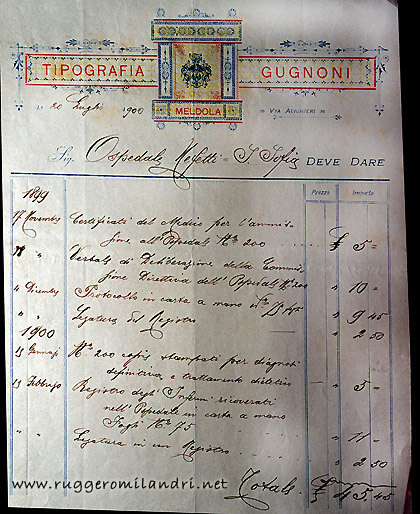 TIPOGRAFIA GUGNONI
MELDOLA
20 Luglio 1900
VIA ALIGHIERI
Sig. Ospedale Nefetti = S. Sofia DEVE DARE
Prezzo Importo
1899
17 Novembre Certificati del Medico per l'ammis-
sione all'Ospedale No 200 £ 5 =
" Verbali di Deliberazione della Commis-
sione Direttiva dell'Ospedale No 200 " 10 =
Dicembre Protocollo in carta a mano " 9 45
" " Legatura del Registro " 2 50
1900
Gennajo No 200 copie stampati per diagnosi
definitiva e trattamento dietetico " 5 =
13 Febbrajo Registro degli Infermi ricoverati
nell'Ospedale in carta a mano
Fogli No 75 " 11 =
" " Legatura in un Registro " 2 50
Totale £ 45,45
www.ruggeromilandri.net